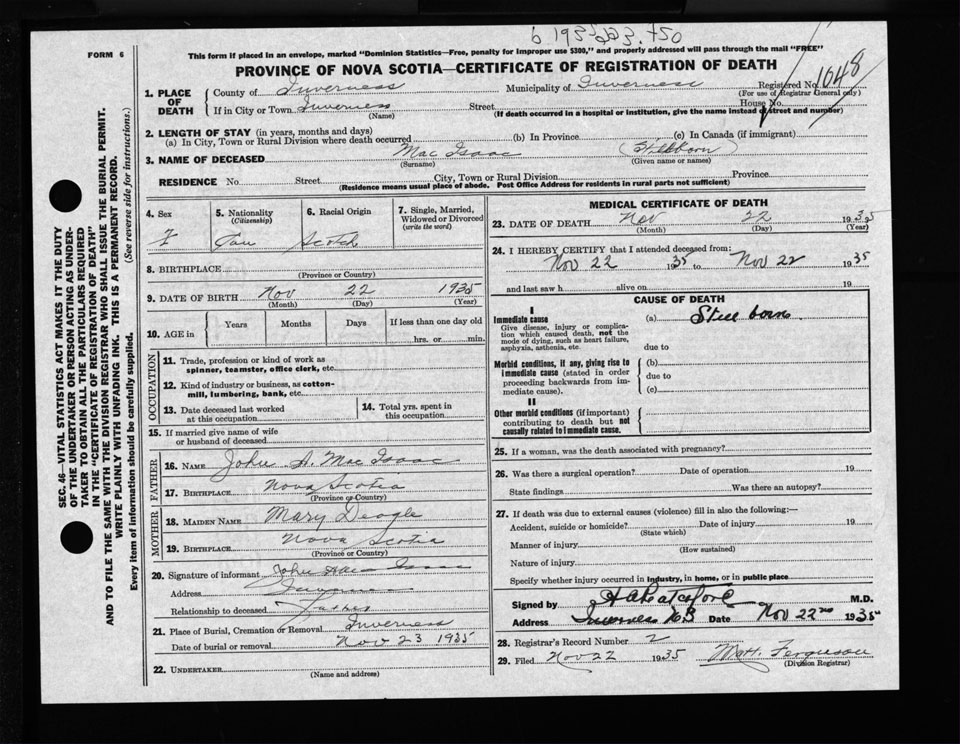 FORM 6
This form if placed in an envelope, marked "Dominion Statistics—Free, penalty for improper use $300," and properly addressed will pass through the mail "FREE"
PROVINCE OF NOVA SCOTIA—CERTIFICATE OF REGISTRATION OF DEATH
1. PLACE OF DEATH
County of Inverness Municipality of Inverness Registered No. 1048
(For use of Registrar General only)
If in City or Town Inverness Street House No.
(Name) (If death occurred in a hospital or institution, give the name instead of street and number)
2. LENGTH OF STAY (in years, months and days)
(a) In City, Town or Rural Division where death occurred (b) In Province (c) In Canada (if immigrant)
3. NAME OF DECEASED Mac Isaac (Stillborn)
(Surname) (Given name or names)
RESIDENCE No. Street City, Town or Rural Division Province
(Residence means usual place of abode. Post Office Address for residents in rural parts not sufficient)
4. Sex F
5. Nationality (Citizenship) Can
6. Racial Origin Scotch
7. Single, Married, Widowed or Divorced (write the word)
8. BIRTHPLACE
(Province or Country)
9. DATE OF BIRTH Nov 22 1935
(Month) (Day) (Year)
10. AGE in Years Months Days If less than one day old
hrs. or min.
OCCUPATION
11. Trade, profession or kind of work as spinner, teamster, office clerk, etc.
12. Kind of industry or business, as cotton-mill, lumbering, bank, etc.
13. Date deceased last worked at this occupation
14. Total yrs. spent in this occupation
15. If married give name of wife or husband of deceased
FATHER
16. NAME John A. Mac Isaac
17. BIRTHPLACE Nova Scotia
(Province or Country)
MOTHER
18. MAIDEN NAME Mary Deagle
19. BIRTHPLACE Nova Scotia
(Province or Country)
20. Signature of informant John A Mac Isaac
Address Inverness
Relationship to deceased Father
21. Place of Burial, Cremation or Removal Inverness
Date of burial or removal Nov 23 1935
22. UNDERTAKER
(Name and address)
MEDICAL CERTIFICATE OF DEATH
23. DATE OF DEATH Nov 22 1935
(Month) (Day) (Year)
24. I HEREBY CERTIFY that I attended deceased from:
Nov 22 1935 to Nov 22 1935
and last saw h alive on 19
CAUSE OF DEATH
I
Immediate cause
Give disease, injury or complication which caused death, not the mode of dying, such as heart failure, asphyxia, asthenia, etc.
(a) Still born
due to
Morbid conditions, if any, giving rise to immediate cause (stated in order proceeding backwards from immediate cause).
(b)
due to
(c)
II
Other morbid conditions (if important) contributing to death but not causally related to immediate cause.
25. If a woman, was the death associated with pregnancy?
26. Was there a surgical operation? Date of operation 19
State findings Was there an autopsy?
27. If death was due to external causes (violence) fill in also the following:—
Accident, suicide or homicide? Date of injury 19
(State which)
Manner of injury
(How sustained)
Nature of injury
Specify whether injury occurred in industry, in home, or in public place
Signed by M.D.
Address Inverness Date Nov 22nd 1935
28. Registrar's Record Number 2
29. Filed Nov 22 1935 Matt. Ferguson
(Division Registrar)
SEC. 46—VITAL STATISTICS ACT MAKES IT THE DUTY
OF THE UNDERTAKER OR PERSON ACTING AS UNDER-
TAKER TO OBTAIN ALL THE PARTICULARS REQUIRED
IN THE "CERTIFICATE OF REGISTRATION OF DEATH"
AND TO FILE THE SAME WITH THE DIVISION REGISTRAR WHO SHALL ISSUE THE BURIAL PERMIT.
WRITE PLAINLY WITH UNFADING INK. THIS IS A PERMANENT RECORD.
Every item of information should be carefully supplied. (See reverse side for instructions.)